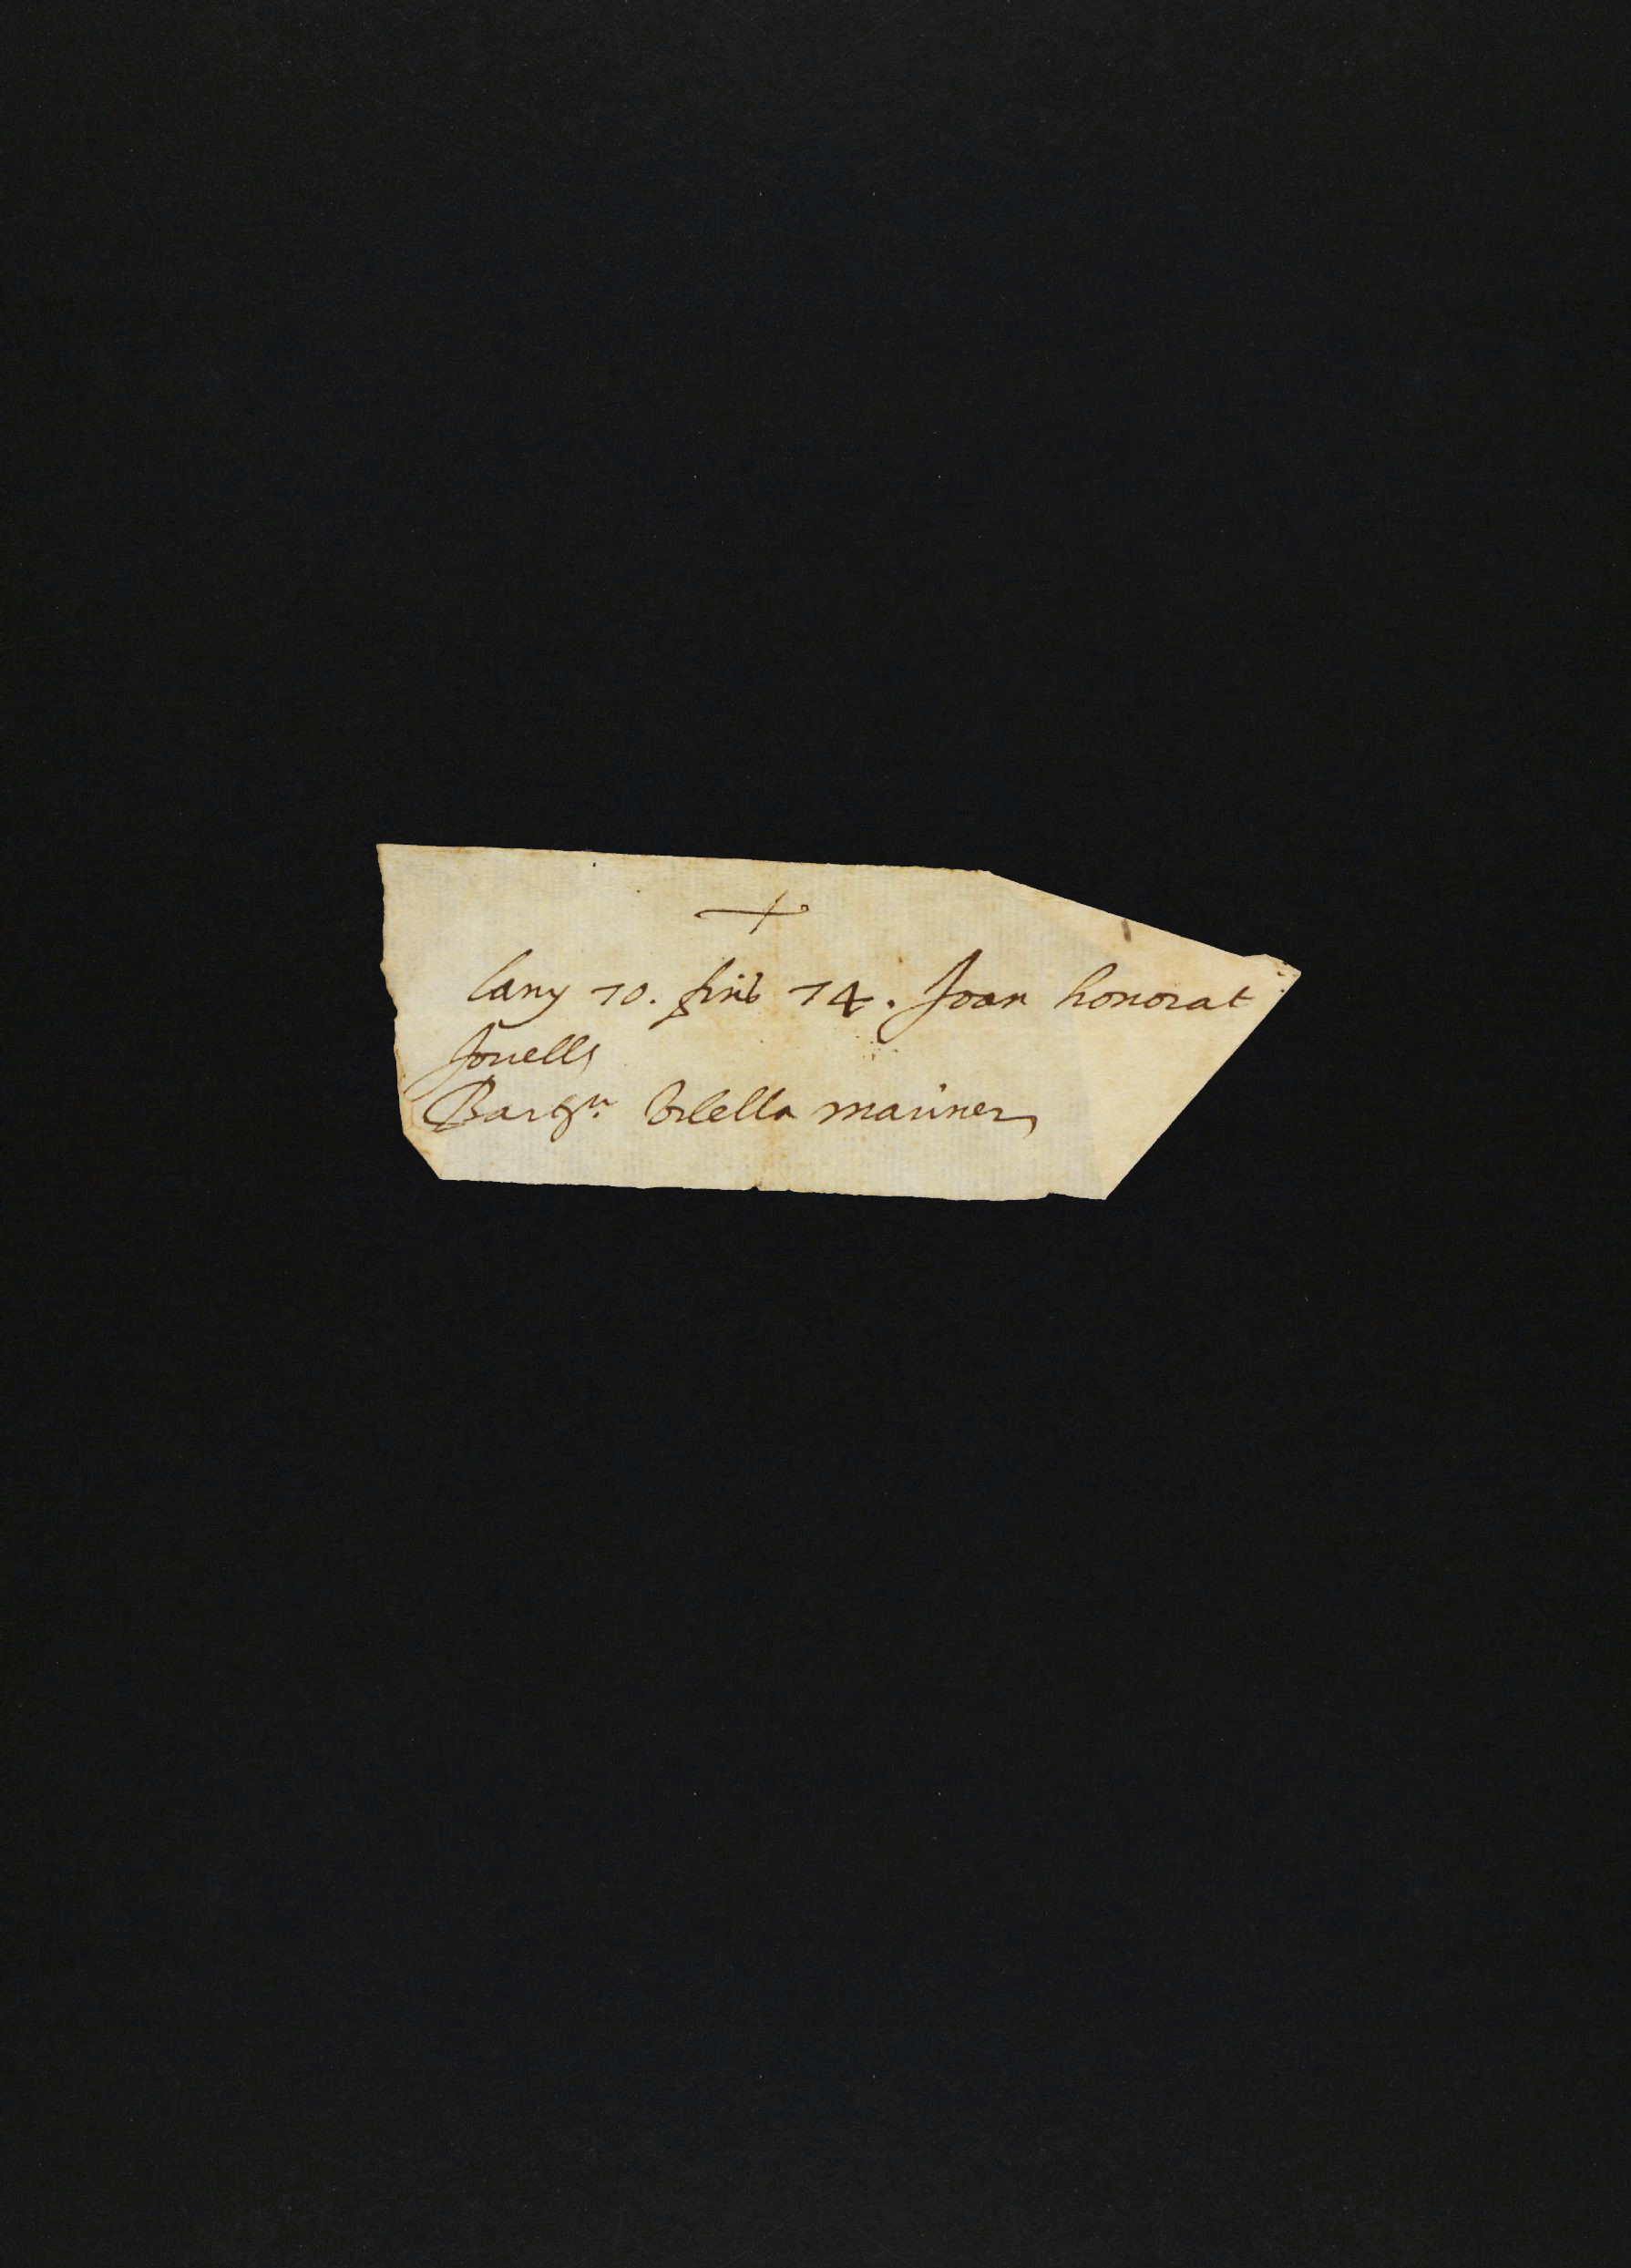 +
lany 70. fins 74. Joan honorat
Jovells
Bart.^u Vilella mariner